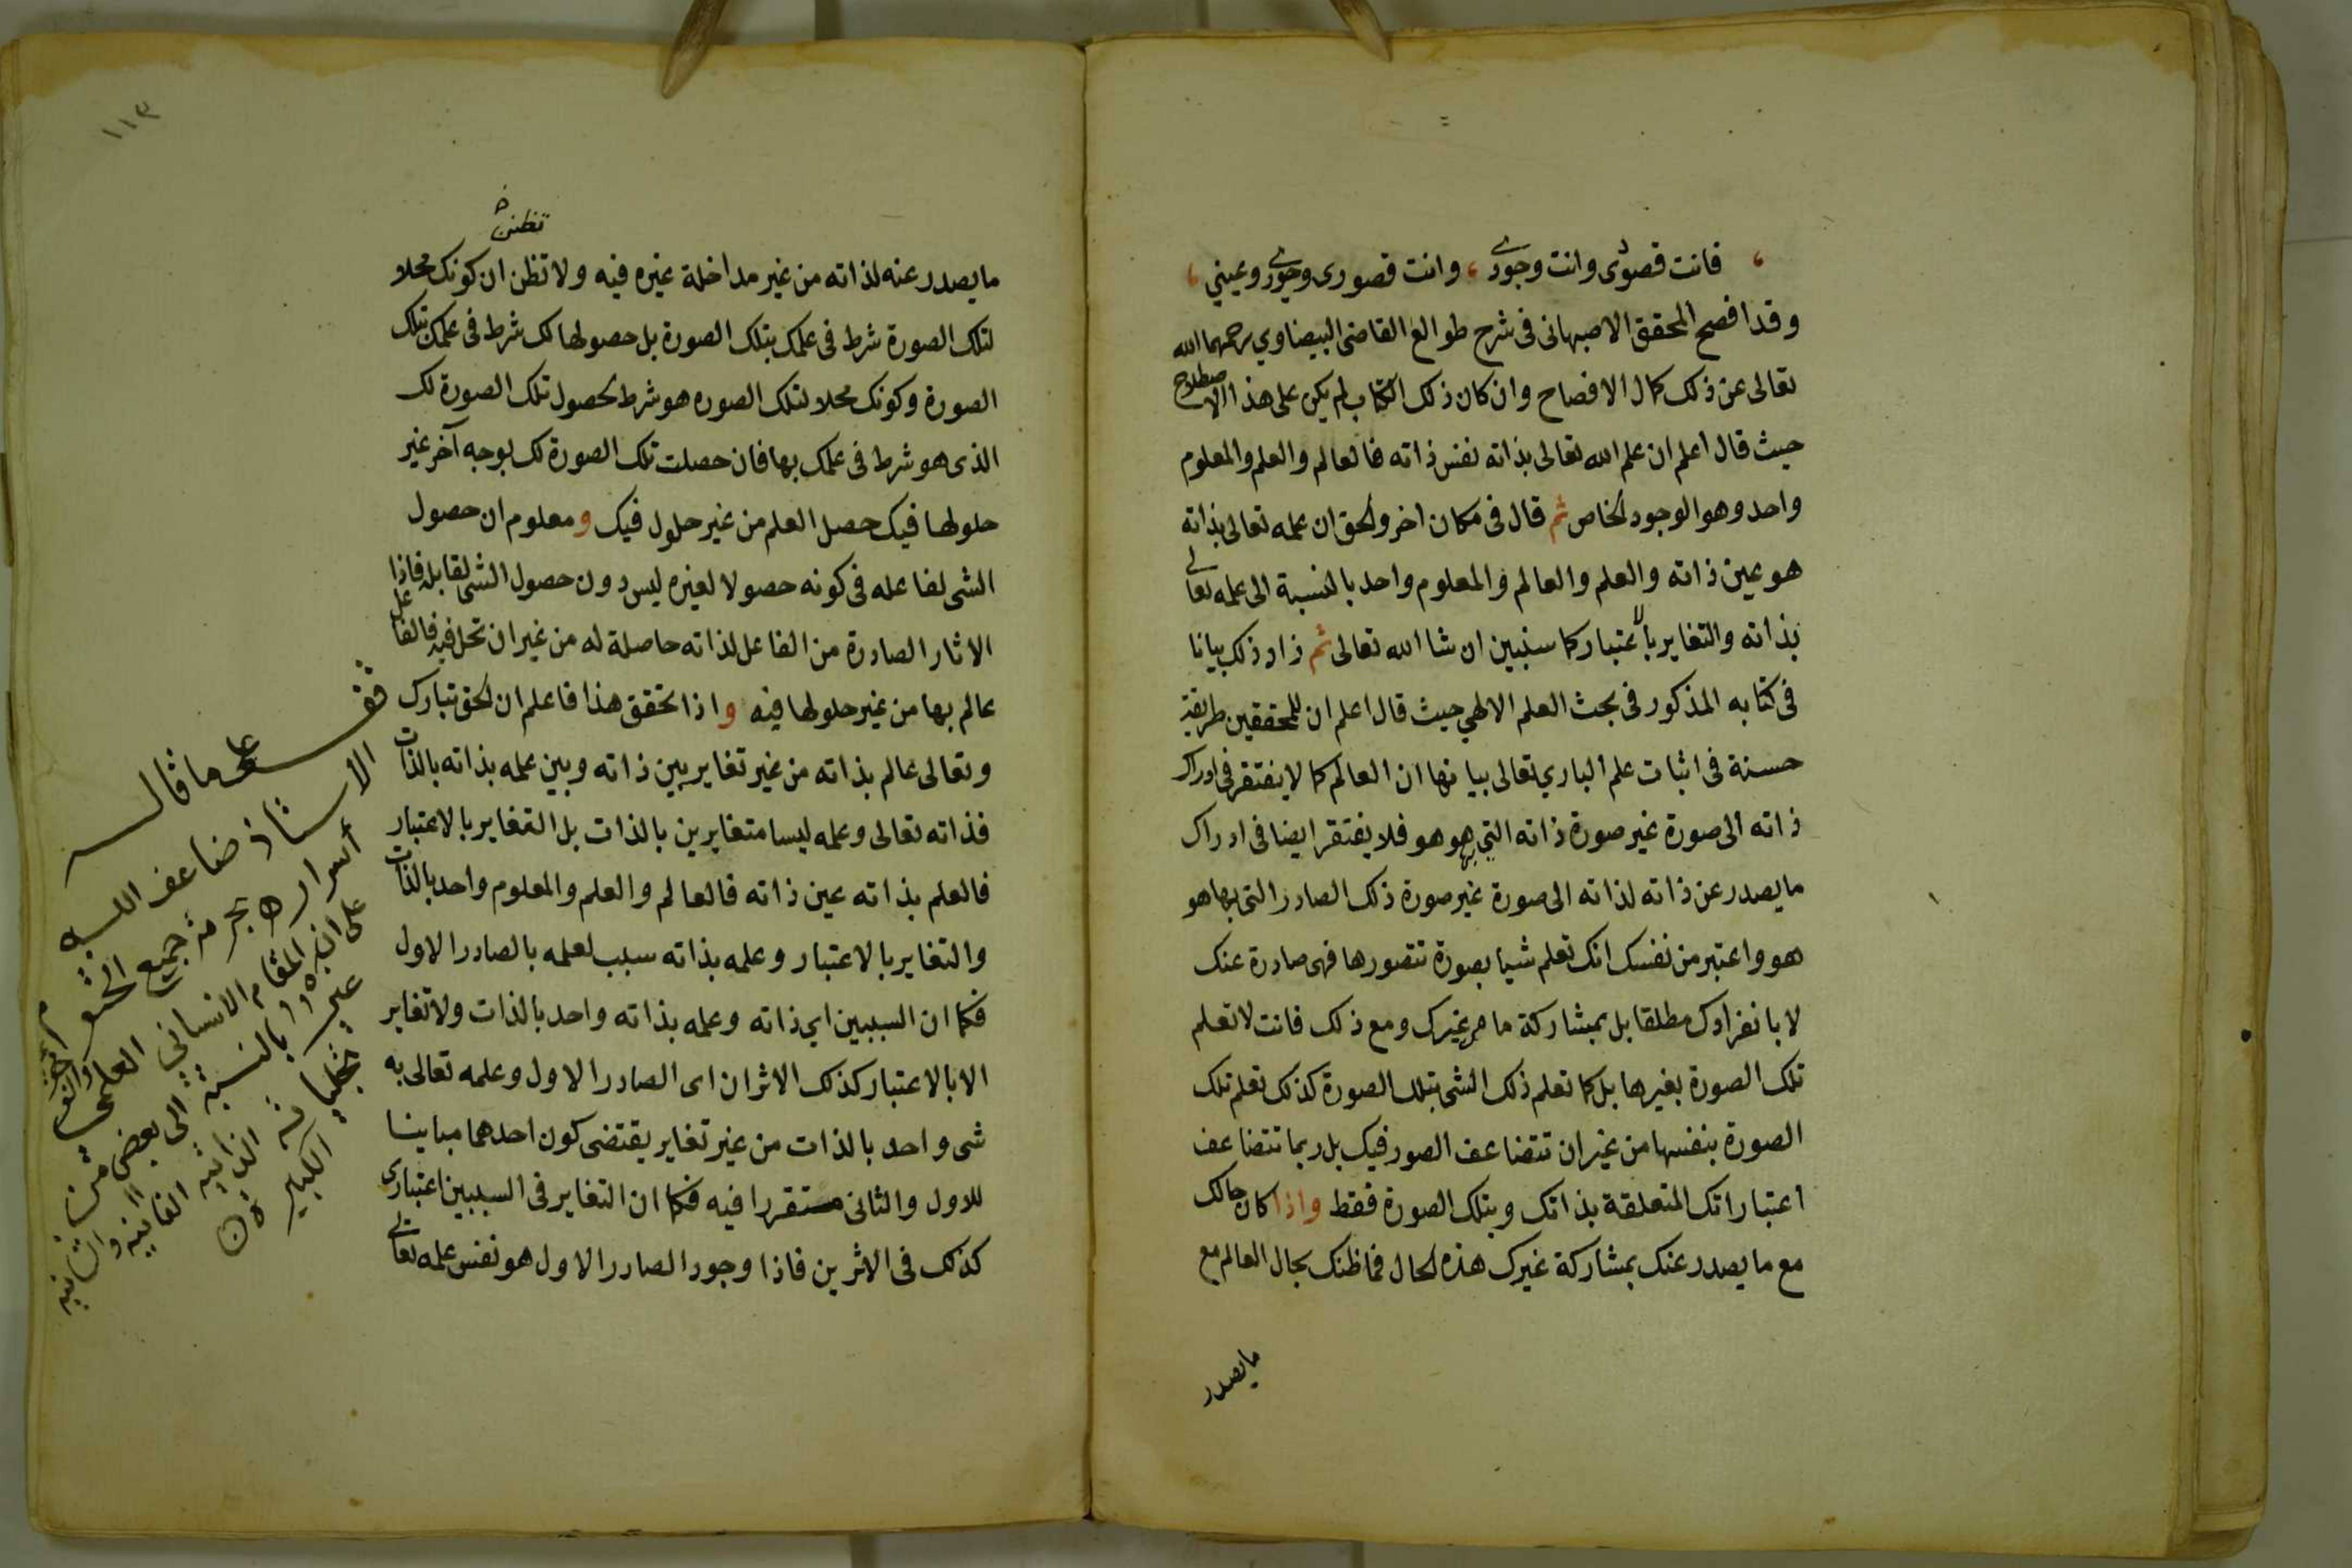 فانت قصودى وانت وجودى ، وانت قصورى وحورى وعيني ،
وقد افصح المحقق الاصبهانى فى شرح طوالع القاضى البيضاوي رحمهما الله
تعالى عن ذلك كمال الافصاح وان كان ذلك الكتاب لم يكن على هذا الاصطلاح
حيث قال اعلم ان علم الله تعالى بذاته نفس ذاته فالعالم والعلم والمعلوم
واحد وهو الوجود الخاص ثم قال فى مكان اخر والحق ان علمه تعالى بذاته
هو عين ذاته والعلم والعالم والمعلوم واحد بالنسبة الى علمه تعالى
بذاته والتغاير بالاعتبار كما سنبين ان شا الله تعالى ثم زاد ذلك بيانا
فى كتابه المذكور فى بحث العلم الالهي حيث قال اعلم ان للمحققين طريقة
حسنة فى اثبات علم الباري تعالى بيانها ان العالم كما لا يفتقر فى ادراك
ذاته الى صورة غير صورة ذاته التي بها هو هو فلا يفتقر ايضا فى ادراك
ما يصدر عن ذاته لذاته الى صورة غير صورة ذلك الصادر التى بها هو
هو واعتبر من نفسك انك تعلم شيا بصورة تتصورها فهى صادرة عنك
لا بانفرادك مطلقا بل بمشاركة ما من غيرك ومع ذلك فانت لا تعلم
تلك الصورة بغيرها بل كما تعلم ذلك الشى بتلك الصورة كذلك تعلم تلك
الصورة بنفسها من غير ان تتضاعف الصور فيك بل ربما تتضاعف
اعتباراتك المتعلقة بذاتك وبتلك الصورة فقط واذا كان حالك
مع ما يصدر عنك بمشاركة غيرك هذه الحال فما ظنك بحال العالم مع
ما يصدر
١١٣
تظنن
ما يصدر عنه لذاته من غير مداخلة غيره فيه ولا تظن ان كونك محلا
لتلك الصورة شرط فى علمك بتلك الصورة بل حصولها لك شرط فى علمك بتلك
الصورة وكونك محلا لتلك الصوره هو شرط لحصول تلك الصورة لك
الذى هو شرط فى علمك بها فان حصلت تلك الصورة لك بوجه آخر غير
حلولها فيك حصل العلم من غير حلول فيك ومعلوم ان حصول
الشى لفاعله فى كونه حصولا لغيره ليس دون حصول الشى لقابله فاذا
الاثار الصادرة من الفاعل لذاته حاصلة له من غير ان تحل فيه فالفاعل
عالم بها من غير حلولها فيه واذا تحقق هذا فاعلم ان الحق تبارك
وتعالى عالم بذاته من غير تغاير بين ذاته وبين علمه بذاته بالذات
فذاته تعالى وعلمه ليسا متغايرين بالذات بل التغاير بالاعتبار
فالعلم بذاته عين ذاته فالعالم والعلم والمعلوم واحد بالذات
والتغاير بالاعتبار وعلمه بذاته سبب لعلمه بالصادر الاول
فكما ان السببين اي ذاته وعلمه بذاته واحد بالذات ولا تغاير
الا بالاعتبار كذلك الاثران اى الصادر الاول وعلمه تعالى به
شى واحد بالذات من غير تغاير يقتضى كون احدهما مباينا
للاول والثانى مستقرا فيه فكما ان التغاير فى السببين اعتبارى
كذلك فى الاثرين فاذا وجود الصادر الاول هو نفس علمه تعالى
قف على ما قال
الاستاذ ضاعف الله
أسراره بحرمة جميع
على ان المقام الانساني العلمى
بالنسبة الى بعض
تجلياته الذاتيه الفانيه
الكبير